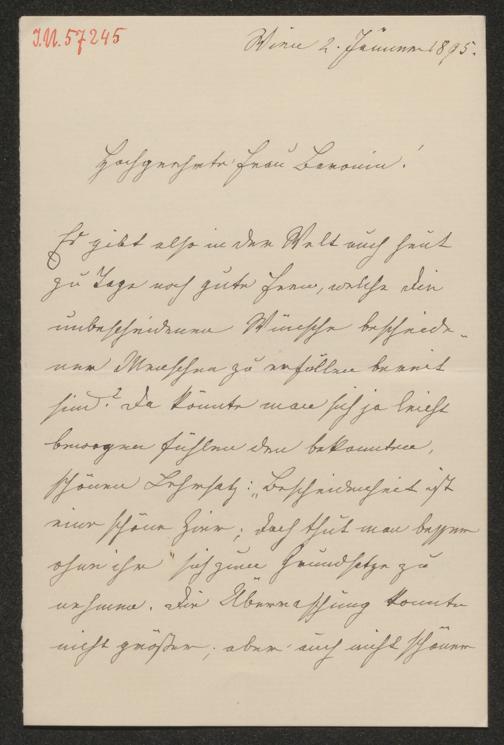 I.N. 57245
Wien 2. Jänner 1895.
Hochgeehrte Frau Baronin!
Es gibt also in der Welt auch heut
zu Tage noch gute Feen, welche die
unbescheidenen Wünsche bescheide-
ner Menschen zu erfüllen bereit
sind? Da könnte man sich ja leicht
bewogen fühlen den bekannten,
schönen Lehrsatz: „Bescheidenheit ist
eine schöne Zier; doch thut man besser
ohne ihr" sich zum Grundsatze zu
nehmen. Die Überraschung konnte
nicht größer, aber auch nicht schöner